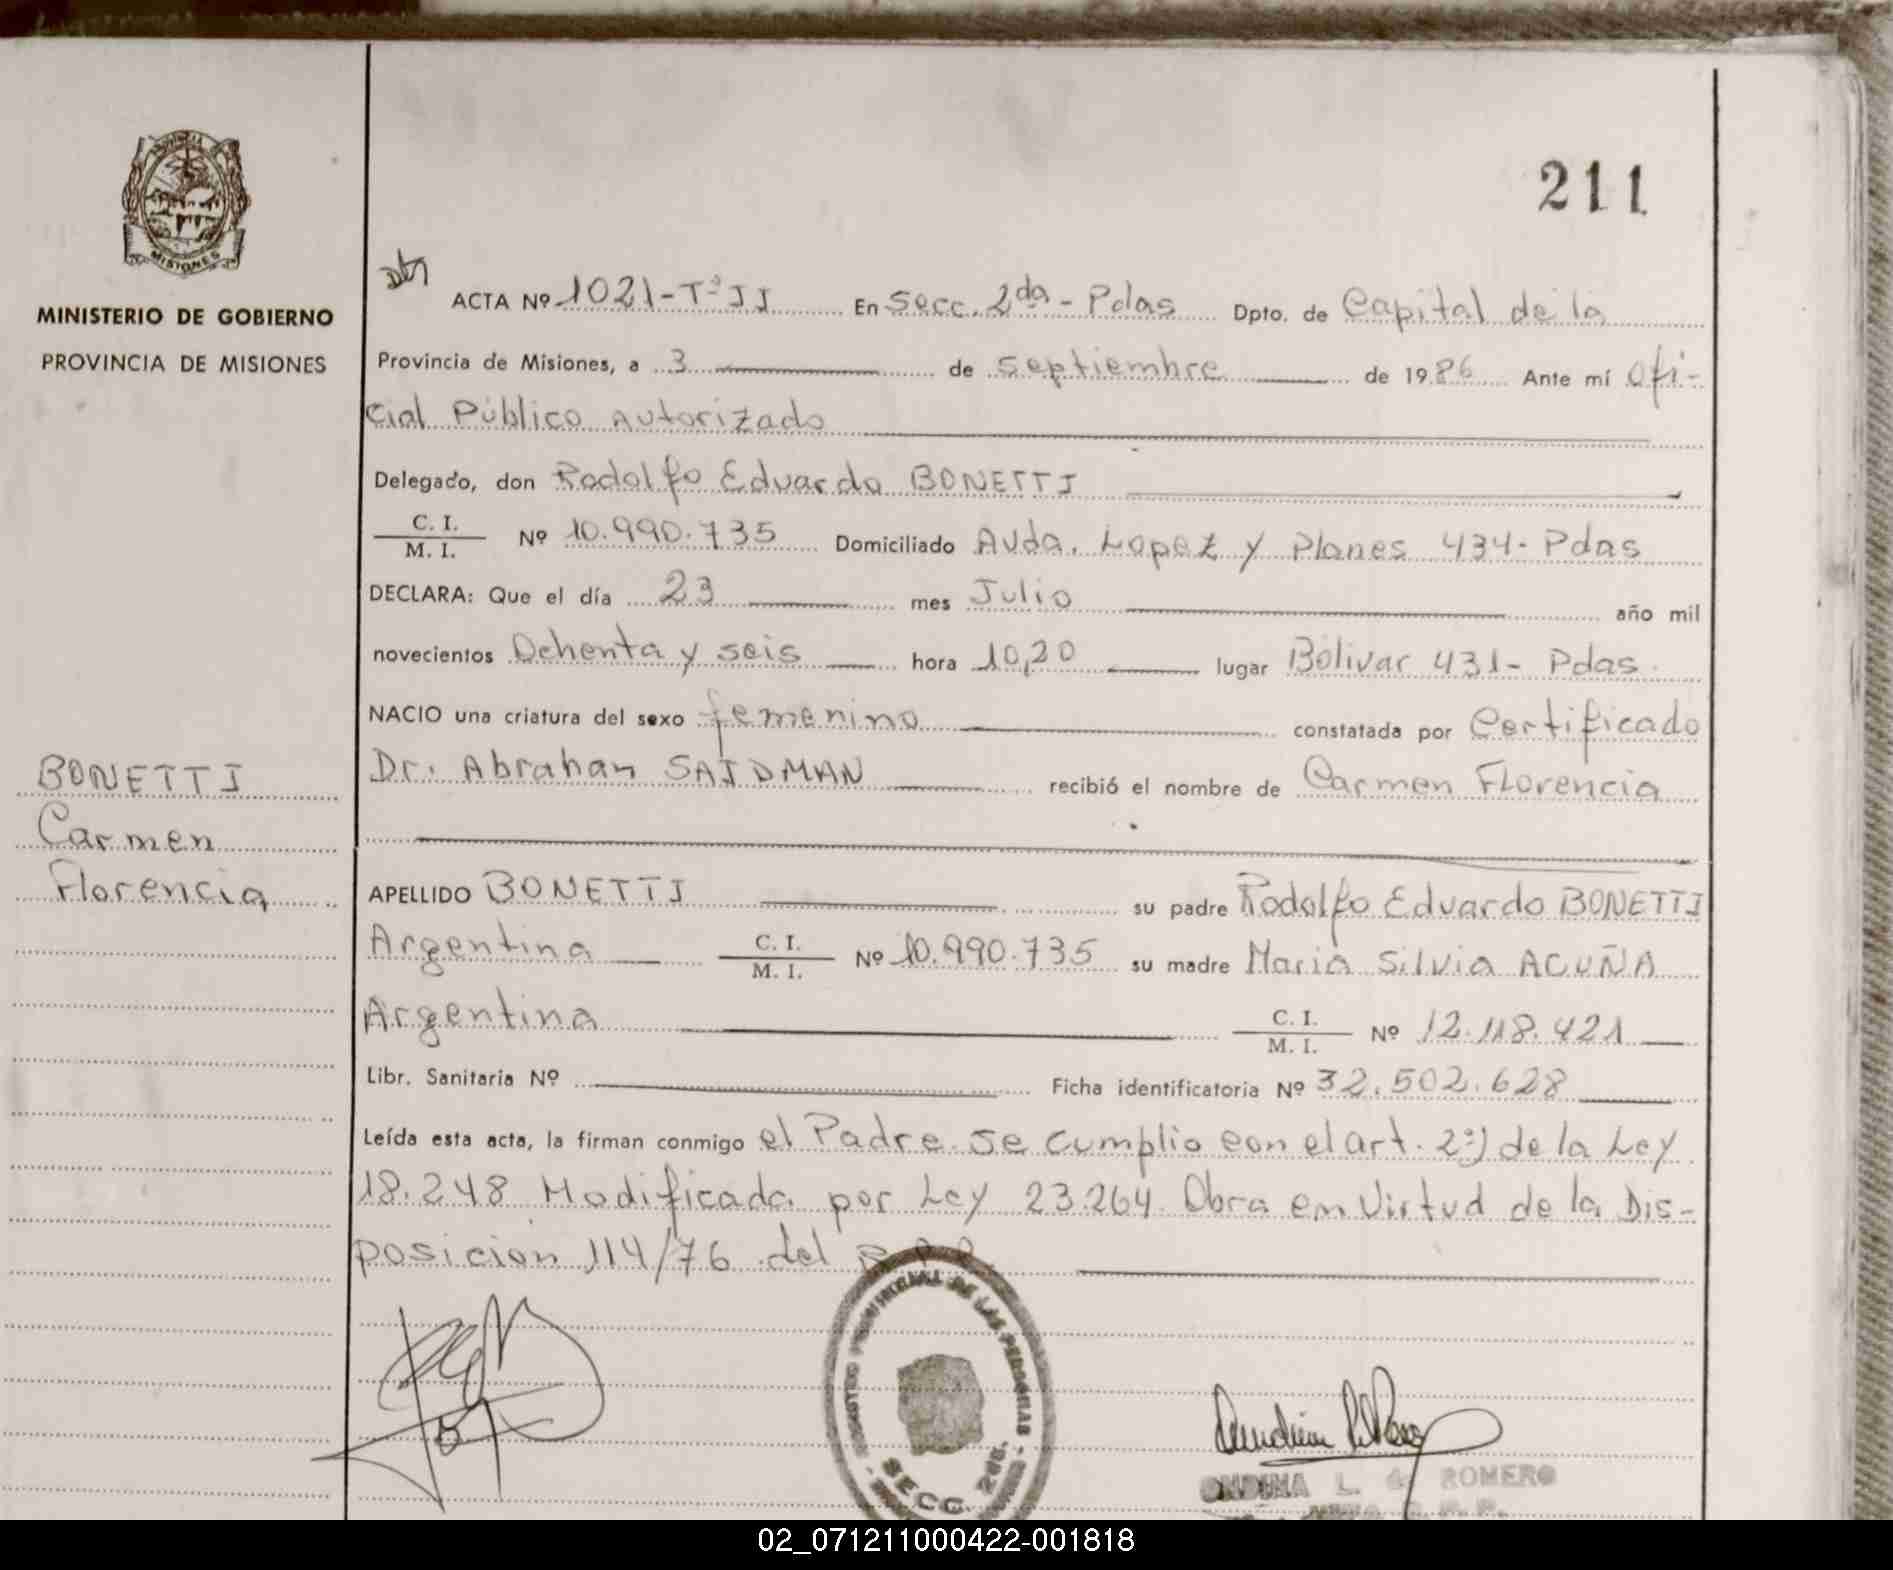 211
PROVINCIA DE
MISIONES
MINISTERIO DE GOBIERNO
PROVINCIA DE MISIONES
ACTA Nº 1021-Tº II En Secc. 2da - Pdas Dpto. de Capital de la
Provincia de Misiones, a 3 de Septiembre de 1986 Ante mí Ofi-
cial Público Autorizado
Delegado, don Rodolfo Eduardo BONETTI
C. I.
M. I. Nº 10.990.735 Domiciliado Avda. Lopez y Planes 434- Pdas
DECLARA: Que el día 23 mes Julio año mil
novecientos Ochenta y seis hora 10,20 lugar Bolivar 431- Pdas.
NACIO una criatura del sexo femenino constatada por Certificado
Dr. Abrahan SAIDMAN recibió el nombre de Carmen Florencia
BONETTI
Carmen
Florencia
APELLIDO BONETTI su padre Rodolfo Eduardo BONETTI
Argentina C. I.
M. I. Nº 10.990.735 su madre Maria Silvia ACUÑA
Argentina C. I.
M. I. Nº 12.118.421
Libr. Sanitaria Nº Ficha identificatoria Nº 32.502.628
Leída esta acta, la firman conmigo el Padre. Se cumplio con el art. 2º) de la Ley
18.248 Modificada por Ley 23.264. Obra em Virtud de la Dis-
posicion 114/76 del R.P.P.
REGISTRO PROVINCIAL DE LAS PERSONAS
SECC. 2da.
ONDINA L. de ROMERO
02_071211000422-001818